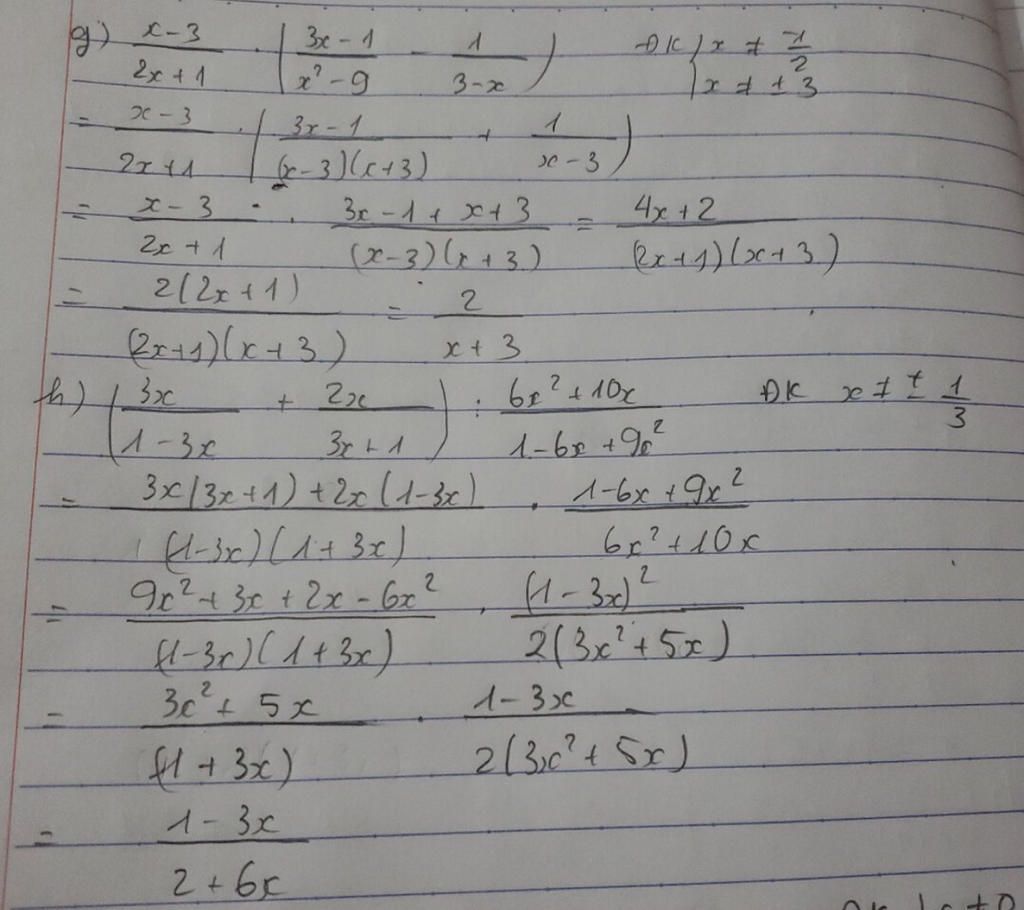 g) (x-3)/(2x+1) . ((3x-1)/(x²-9) - 1/(3-x)) ĐK { x ≠ -1/2
{ x ≠ ±3
= (x-3)/(2x+1) . ((3x-1)/((x-3)(x+3)) + 1/(x-3))
= (x-3)/(2x+1) . (3x-1+x+3)/((x-3)(x+3)) = (4x+2)/((2x+1)(x+3))
= 2(2x+1)/((2x+1)(x+3)) = 2/(x+3)
h) (3x/(1-3x) + 2x/(3x+1)) : (6x²+10x)/(1-6x+9x²) ĐK x ≠ ± 1/3
= (3x(3x+1)+2x(1-3x))/((1-3x)(1+3x)) . (1-6x+9x²)/(6x²+10x)
= (9x²+3x+2x-6x²)/((1-3x)(1+3x)) . (1-3x)²/(2(3x²+5x))
= (3x²+5x)/((1+3x)) . (1-3x)/(2(3x²+5x))
= (1-3x)/(2+6x)